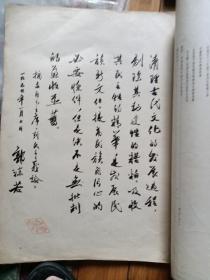 清理古代文化的发展过程，
剔除其封建性的糟粕，吸收
其民主性的精华，是发展民
族新文化，提高民族自信心的
必要条件，但是决不是无批判
的兼收并蓄。
摘录毛主席新民主主义论
一九五七年一月七日
郭沫若